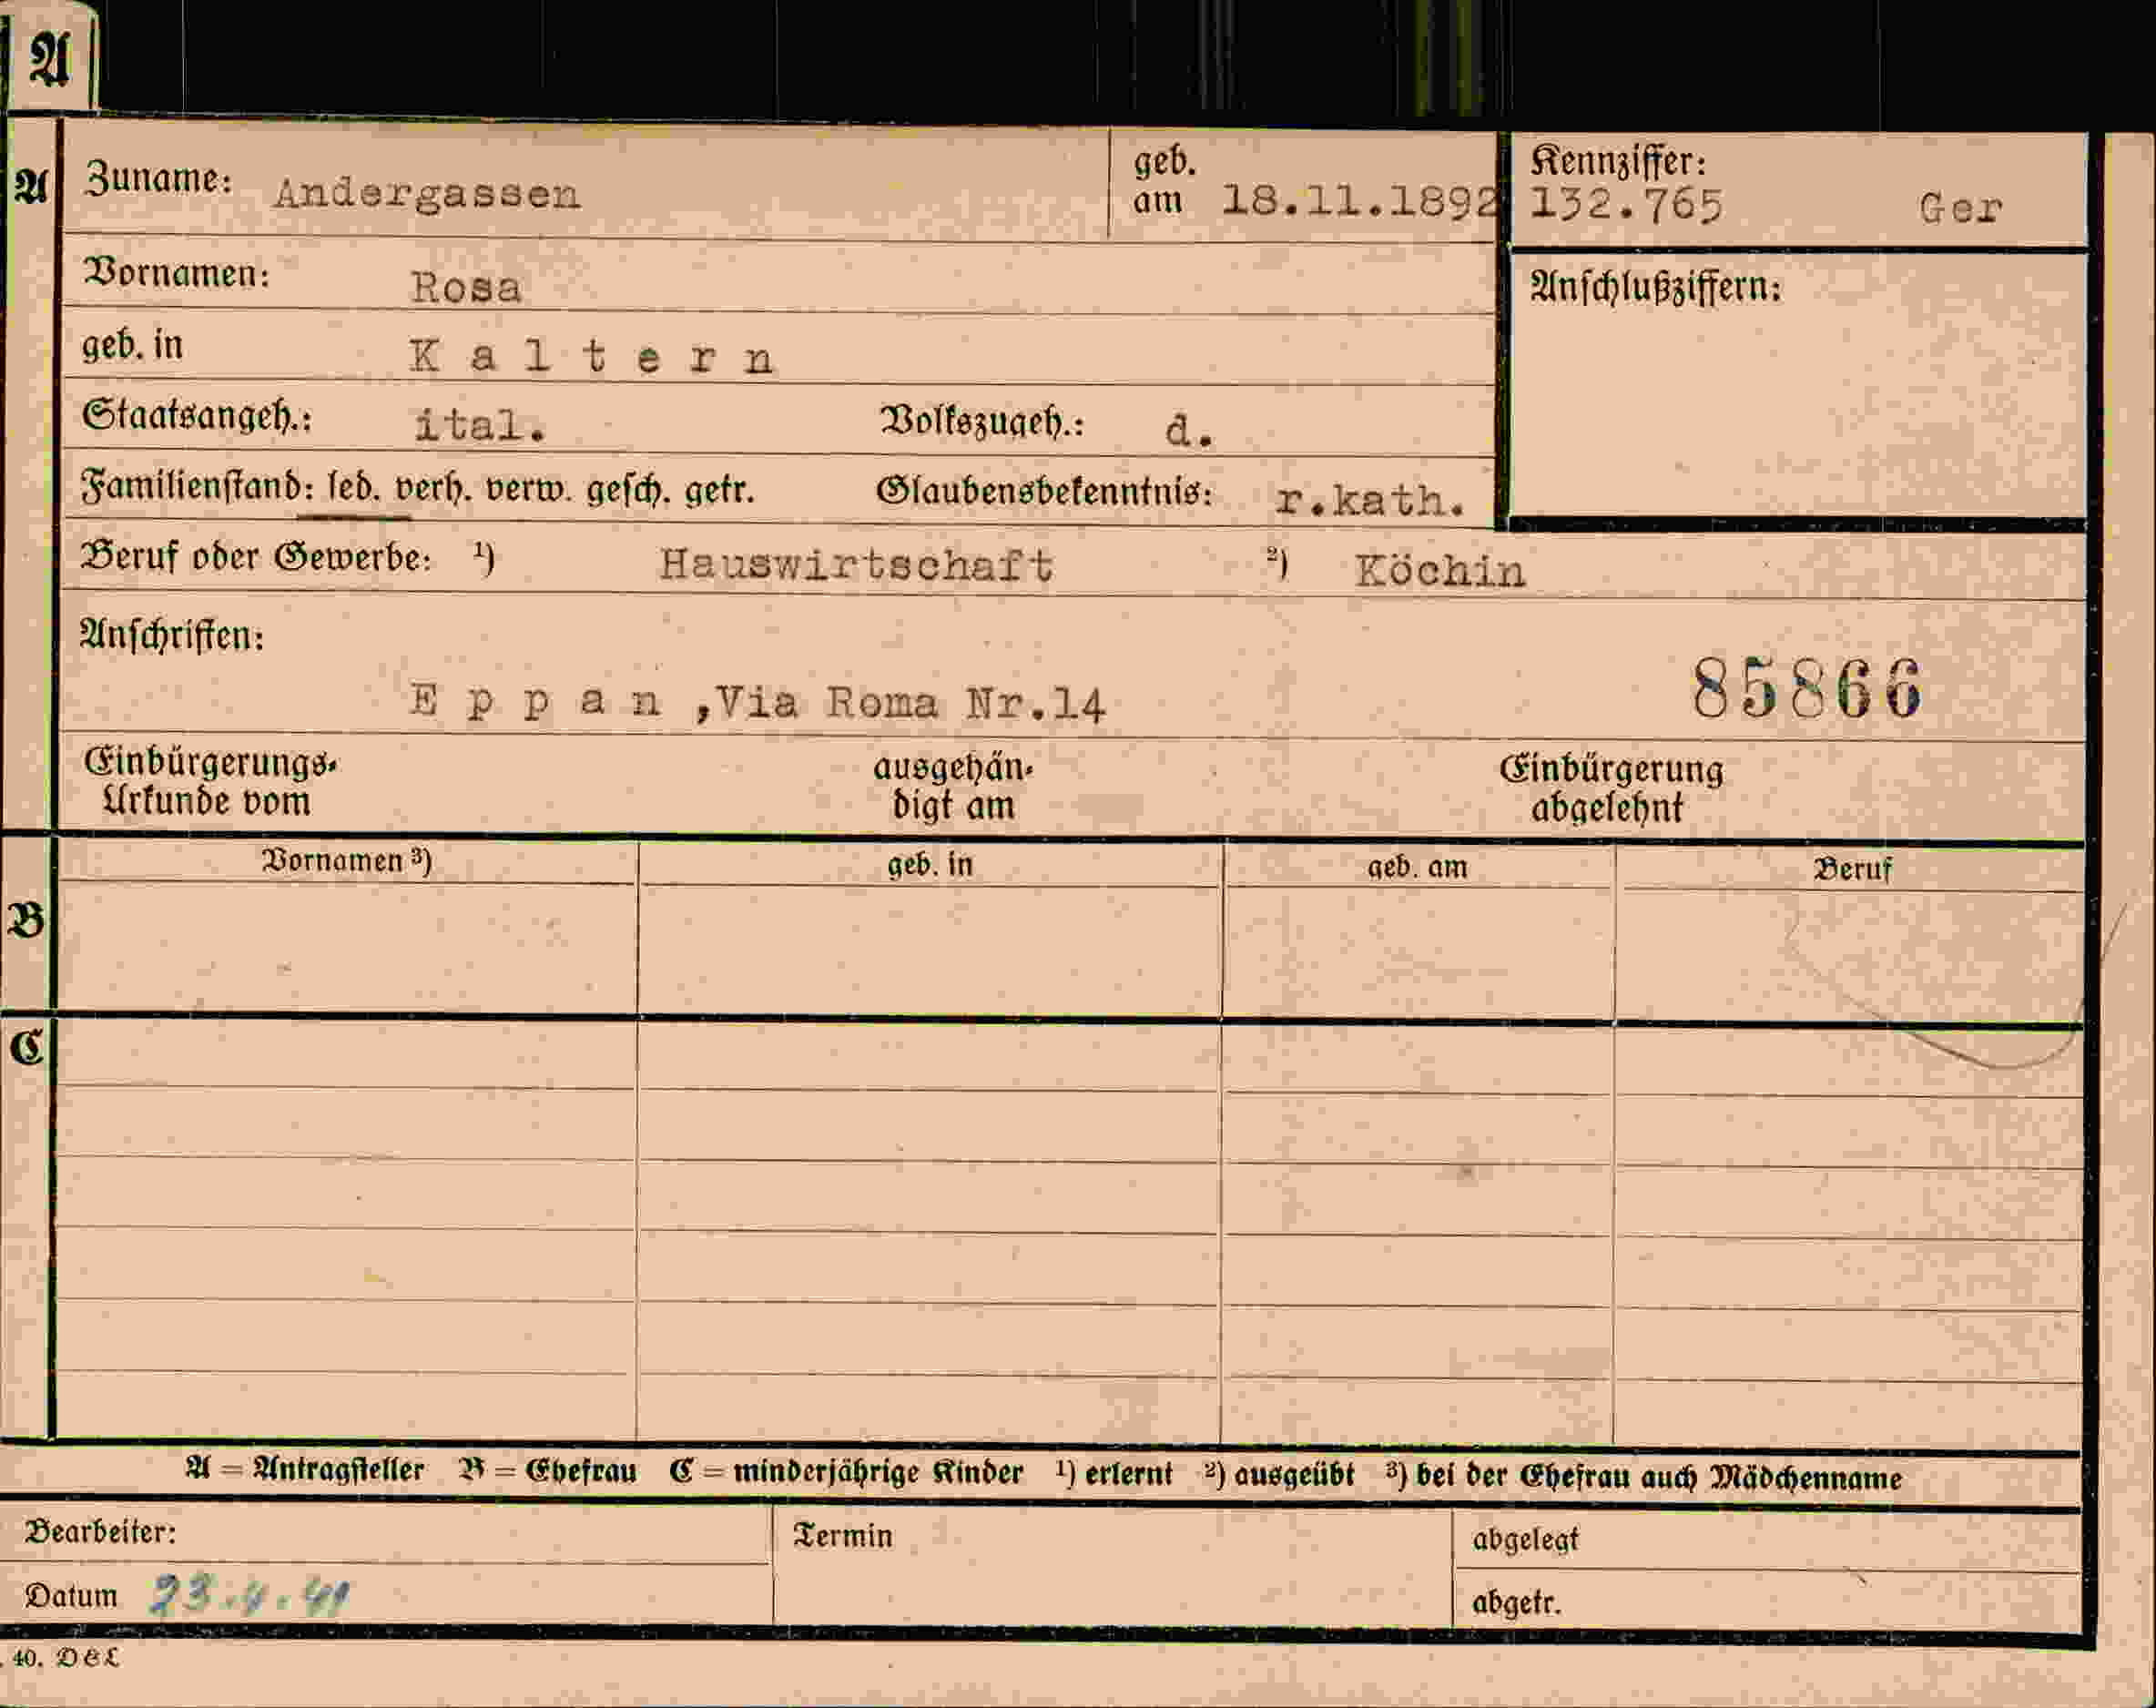 A
A
Zuname: Andergassen
geb. am 18.11.1892
Kennziffer:
132.765 Ger
Vornamen: Rosa
Anschlußziffern:
geb. in Kaltern
Staatsangeh.: ital. Volkszugeh.: d.
Familienstand: led. verh. verw. gesch. getr. Glaubensbekenntnis: r.kath.
Beruf oder Gewerbe: ¹) Hauswirtschaft ²) Köchin
Anschriften:
Eppan ,Via Roma Nr.14
85866
Einbürgerungs-
Urkunde vom
ausgehän-
digt am
Einbürgerung
abgelehnt
B
Vornamen ³) geb. in geb. am Beruf
C
A = Antragsteller B = Ehefrau C = minderjährige Kinder ¹) erlernt ²) ausgeübt ³) bei der Ehefrau auch Mädchenname
Bearbeiter: Termin abgelegt
Datum 23.4.41 abgetr.
40. D&L